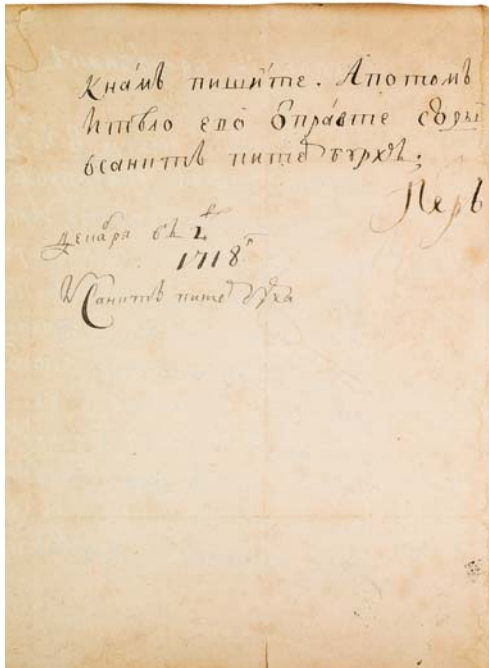 Кна́мъ пиши́те. Апотомъ
итѣло его ѿпра́вте сюды
всанктъ питербурхъ;
Петръ
декабря въ 2 д
1718 г
Санктъ питербурха